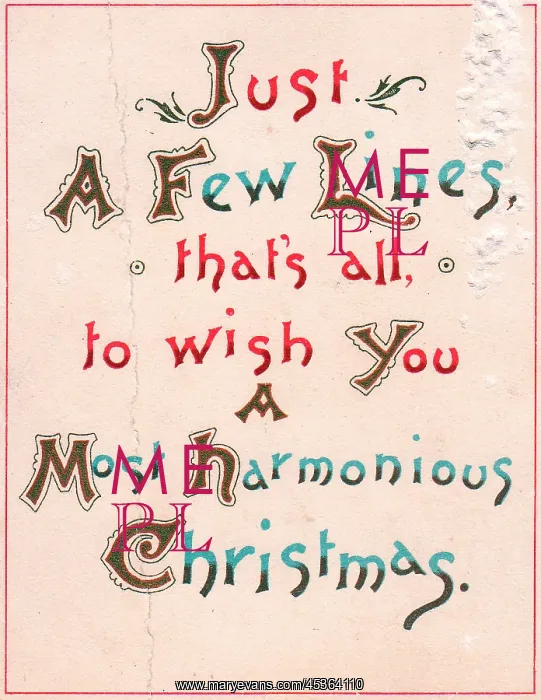 Just.
A Few Lines,
that's all,
to wish You
A
Most harmonious
Christmas.
ME
PL
ME
PL
www.maryevans.com/45364110